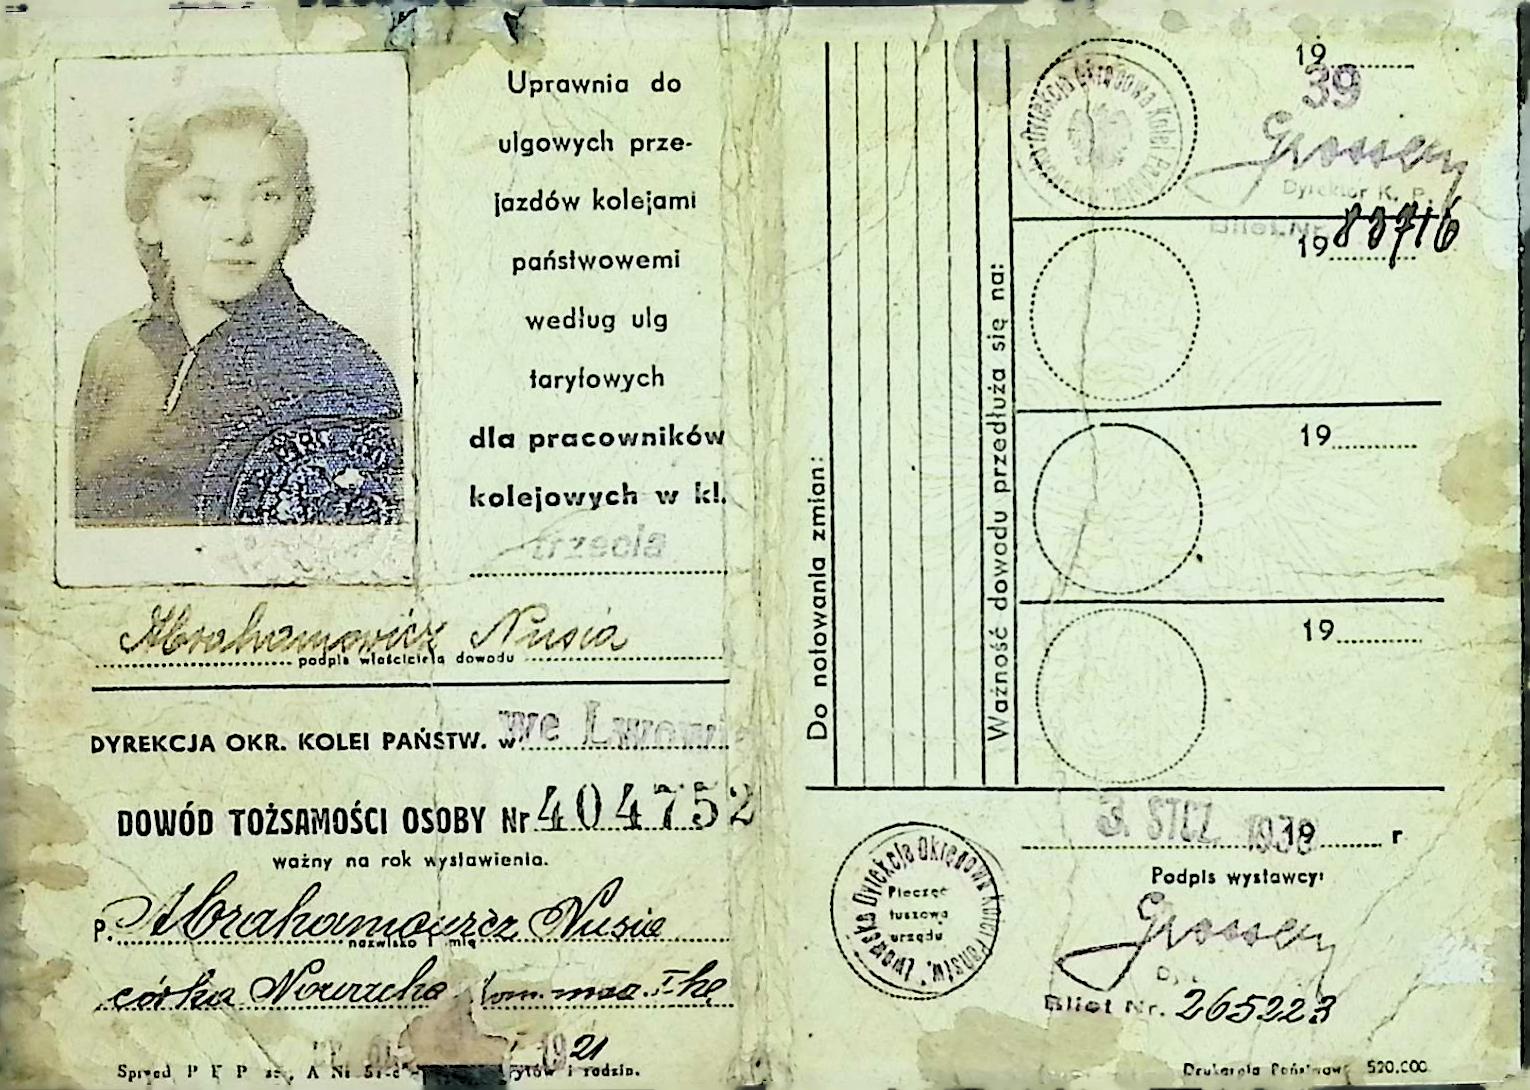 Uprawnia do
ulgowych prze-
jazdów kolejami
państwowemi
według ulg
taryfowych
dla pracowników
kolejowych w kl.
trzecia
Abrahamowicz Nusia
podpis właściciela dowodu
DYREKCJA OKR. KOLEI PAŃSTW. w we Lwowie
DOWÓD TOŻSAMOŚCI OSOBY Nr 404752
ważny na rok wystawienia.
P. Abrahamowicz Nusia
nazwisko i imię
córka Nowacha
1921
i rodzin.
Do notowania zmian:
Ważność dowodu przedłuża się na:
19
39
Dyrekcja Okręgowa Kolei Państw.
Grosser
Dyrektor K. P.
Bilet Nr. 83716
19
19
19
3. STCZ. 1938
19 r
Lwowska Dyrekcja Okręgowa Kolei Państw.
Pieczęć
tuszowa
urzędu
Podpis wystawcy:
Grosser
Bilet Nr. 265223
Drukarnia Państwow. 520.000